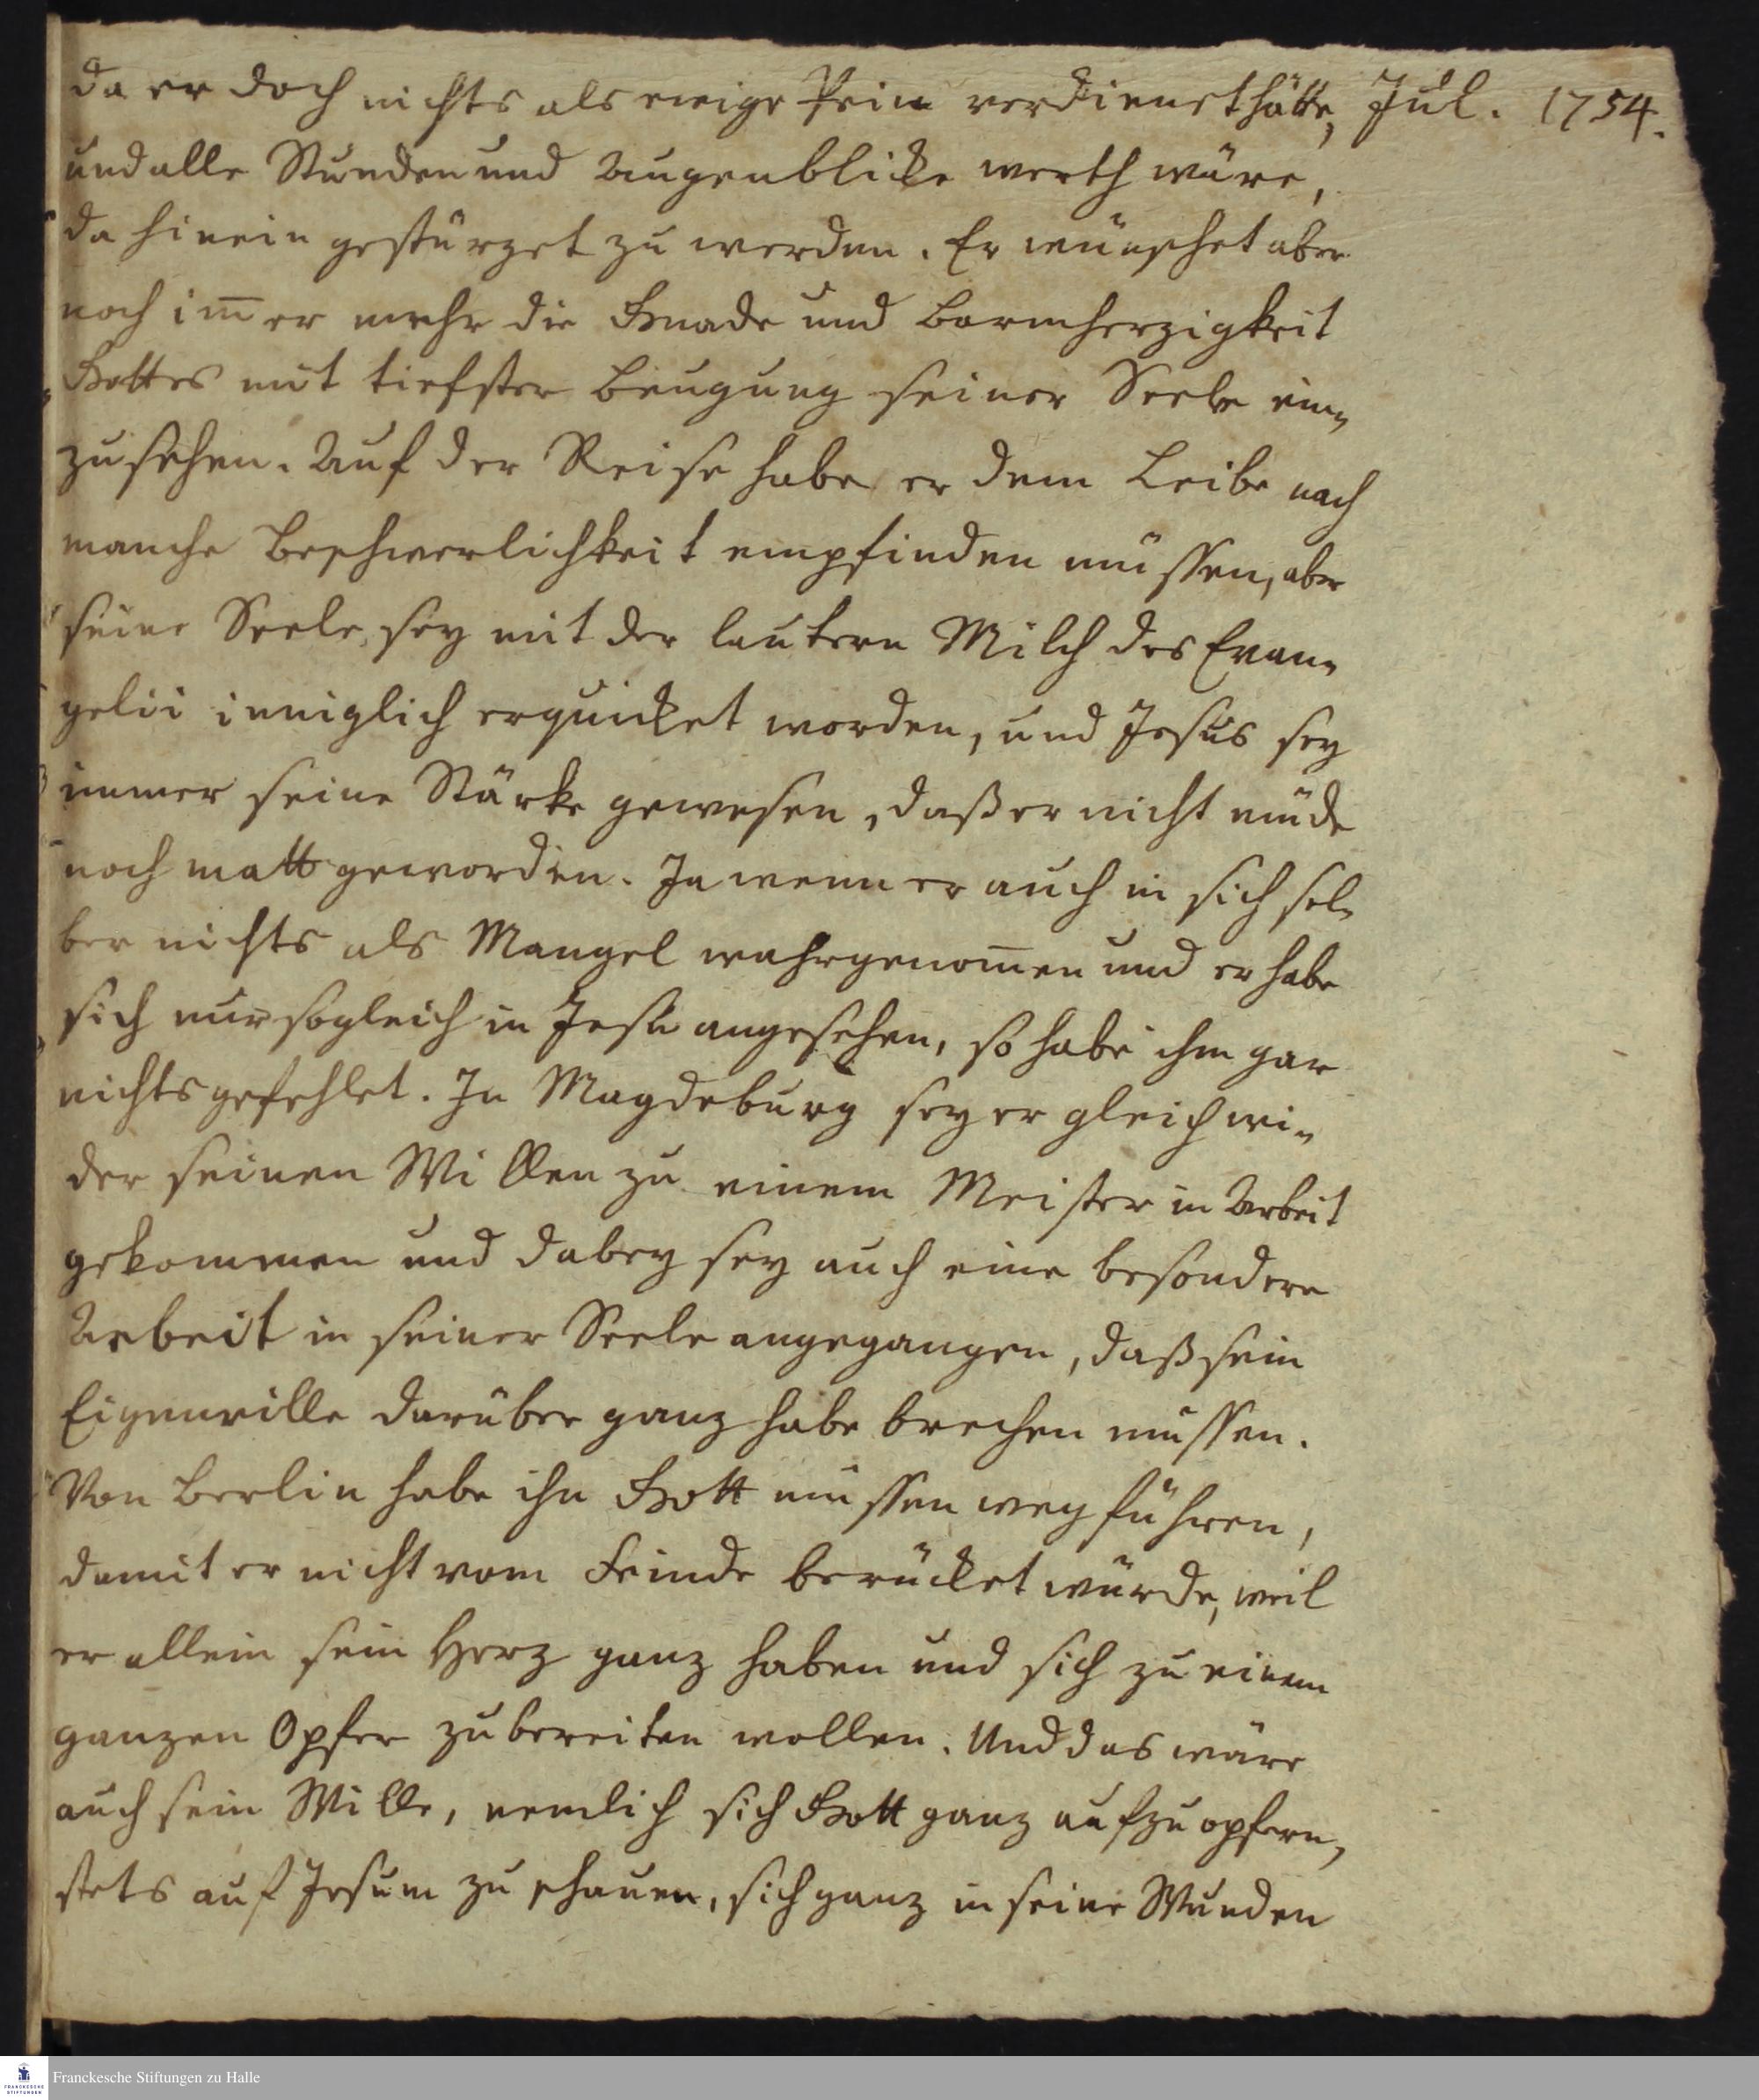 da er doch nichts als ewige Pein verdienet hätte, Jul. 1754.
und alle Stunden und Augenblicke werth wäre,
da hinein gestürzet zu werden. Er wünschet aber
noch im̅er mehr die Gnade und Barmherzigkeit
Gottes mit tiefster Beugung seiner Seele ein„
zusehen. Auf der Reise habe er dem Leibe nach
manche Beschwerlichkeit empfinden müssen, aber
seine Seele sey mit der lautern Milch des Evan„
gelii inniglich erquicket worden, und Jesus sey
immer seine Stärke gewesen, daß er nicht müde
noch matt geworden. Ja wenn er auch in sich sel„
ber nichts als Mangel wahrgenom̅en und er habe
sich nur sogleich in Jesu angesehen, so habe ihm gar
nichts gefehlet. In Magdeburg sey er gleich wi„
der seinen Willen zu einem Meister in Arbeit
gekommen und dabey sey auch eine besondere
Arbeit in seiner Seele angegangen, daß sein
Eigenwille darüber ganz habe brechen müssen.
Von Berlin habe ihn Gott müssen weg führen,
damit er nicht vom Feinde berücket würde, weil
er allein sein Herz ganz haben und sich zu einem
ganzen Opfer zubereiten wollen. Und das wäre
auch sein Wille, nemlich sich Gott ganz aufzuopfern,
stets auf Jesum zu schauen, sich ganz in seine Wunden
Franckesche Stiftungen zu Halle
FRANCKESCHE
STIFTUNGEN